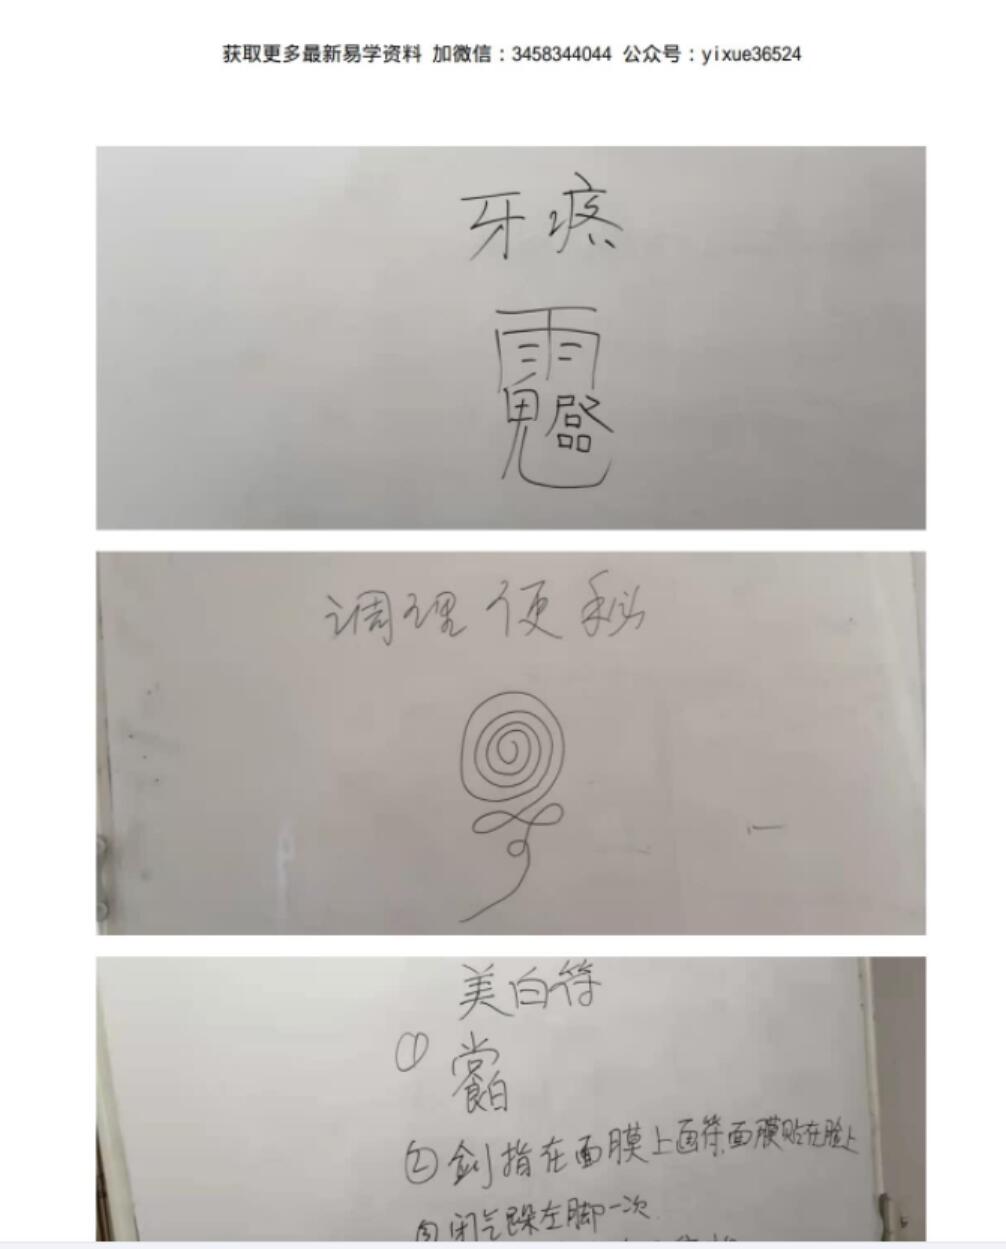 获取更多最新易学资料 加微信：3458344044 公众号：yixue36524
牙疼
调理便秘
美白符
①
②剑指在面膜上画符.面膜贴在脸上
闭气跺左脚一次